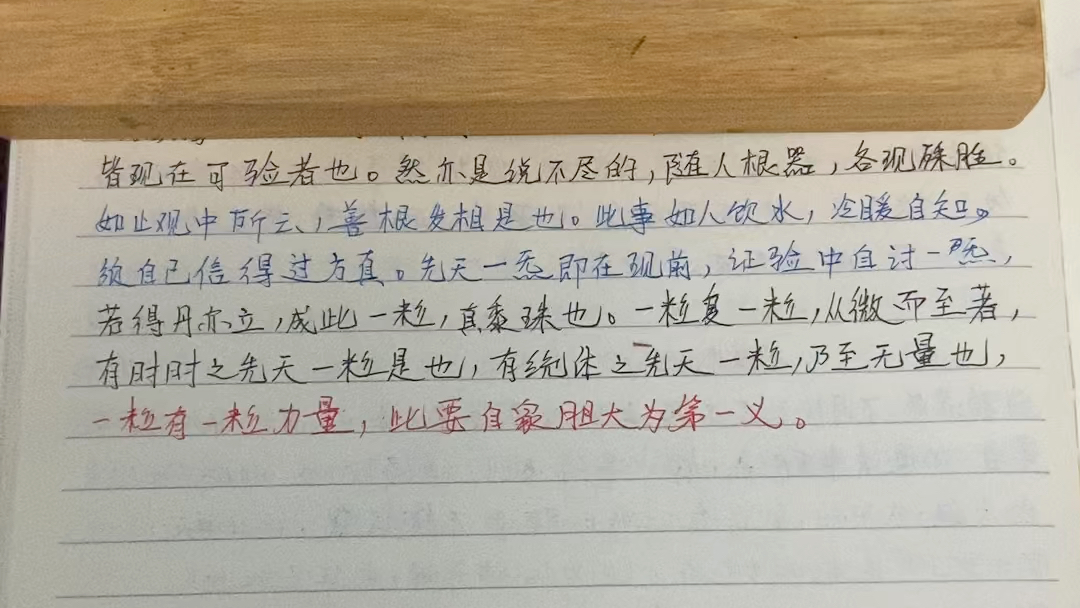 皆现在可验者也。然亦是说不尽的，随人根器，各现殊胜。
如止观中所云，善根发相是也。此事如人饮水，冷暖自知。
须自己信得过方真。先天一炁即在现前，证验中自讨一炁，
若得丹亦立，成此一粒，真黍珠也。一粒复一粒，从微而至著，
有时时之先天一粒是也，有统体之先天一粒，乃至无量也，
一粒有一粒力量，此要自家胆大为第一义。